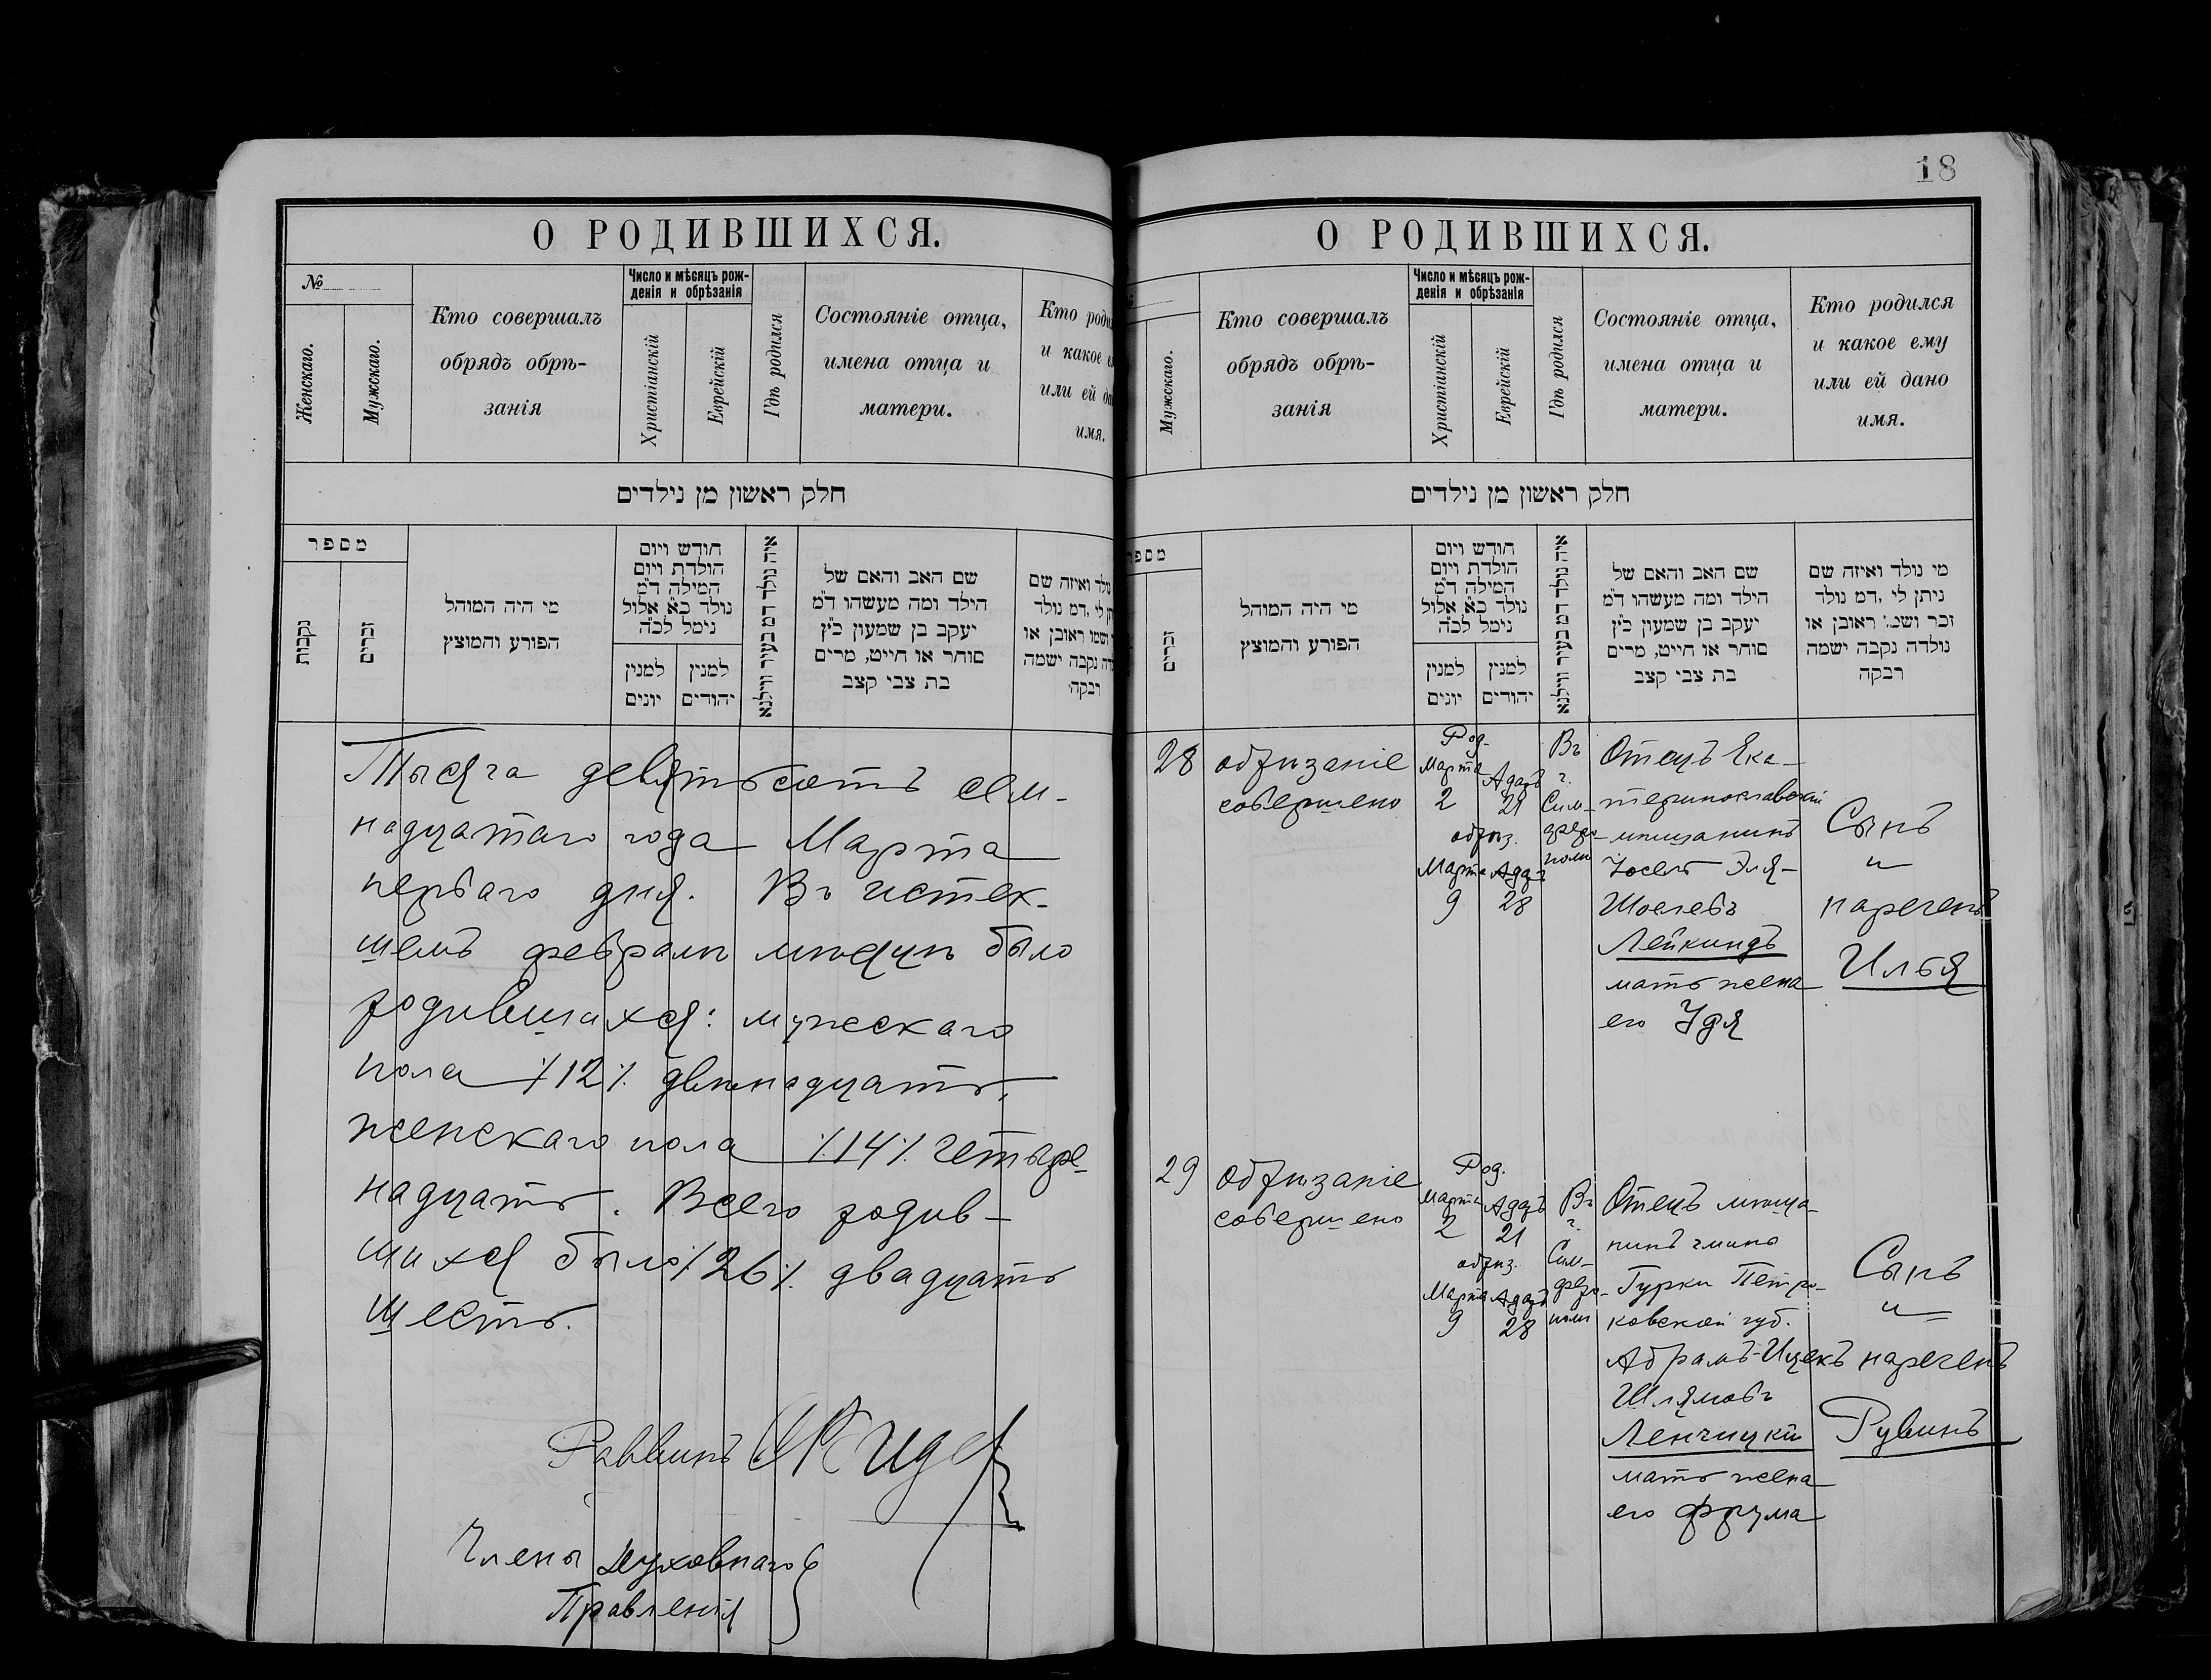 О РОДИВШИХСЯ.
№
Женскаго.
Мужскаго.
Кто совершалъ
обрядъ обрѣ-
занія
Число и мѣсяцъ рож-
денія и обрѣзанія
Христіанскій
Еврейскій
Гдѣ родился
Состояніе отца,
имена отца и
матери.
Кто роди
и какое е
или ей да
имя.
חלק ראשון מן נילדים
מספר
נקבות
זכרים
מי היה המוהל
הפורע והמוצץ
חודש ויום
הולדת ויום
המילה ד״מ
נולד כ״א אלול
נימל לכ״ה
למנין
יונים
למנין
יהודים
איה נולד דמ בעיר ווילנא
שם האב והאם של
הילד ומה מעשהו ד״מ
יעקב בן שמעון כ״ץ
סוחר או חייט, מרים
בת צבי קצב
נולד ואיזה שם
תן לי, דמ נולד
ושמו ראובן או
דה נקבה ישמה
רבקה
Тысяча девятьсотъ сем-
надцатаго года Марта
перваго дня. Въ истек-
шемъ февралѣ мѣсяцѣ было
родившихся: мужескаго
пола ⁒12⁒ двѣнадцать,
женскаго пола ⁒14⁒ четыре-
надцать. Всего родив-
шихся было ⁒26⁒ двадцать
шесть.
Раввинъ
Члены Духовнаго
Правленія
18
О РОДИВШИХСЯ.
Мужскаго.
Кто совершалъ
обрядъ обрѣ-
занія
Число и мѣсяцъ рож-
денія и обрѣзанія
Христіанскій
Еврейскій
Гдѣ родился
Состояніе отца,
имена отца и
матери.
Кто родился
и какое ему
или ей дано
имя.
חלק ראשון מן נילדים
מספר
זכרים
מי היה המוהל
הפורע והמוצץ
חודש ויום
הולדת ויום
המילה ד״מ
נולד כ״א אלול
נימל לכ״ה
למנין
יונים
למנין
יהודים
איה נולד דמ בעיר ווילנא
שם האב והאם של
הילד ומה מעשהו ד״מ
יעקב בן שמעון כ״ץ
סוחר או חייט, מרים
בת צבי קצב
מי נולד ואיזה שם
ניתן לי, דמ נולד
זכר ושמ׳ ראובן או
נולדה נקבה ישמה
רבקה
28
обрѣзаніе
совершено
Род.
Марта Адаръ
2 21
обрѣз.
Марта Адаръ
9 28
Въ
г.
Сим-
феро-
полѣ
Отецъ Ека-
теринославскій
мѣщанинъ
Іосель Эля-
Шоелевъ
Лейкиндъ
мать жена
его Удя
Сынъ
и
нареченъ
Илья
29
обрѣзаніе
совершено
Род.
Марта Адаръ
2 21
обрѣз.
Марта Адаръ
9 28
Въ
г.
Сим-
феро-
полѣ
Отецъ мѣща-
нинъ гмины
Гурки Петро-
ковской губ.
Абрамъ-Ицекъ
Шлямовъ
Ленчицкій
мать жена
его Фрума
Сынъ
и
нареченъ
Рувинъ